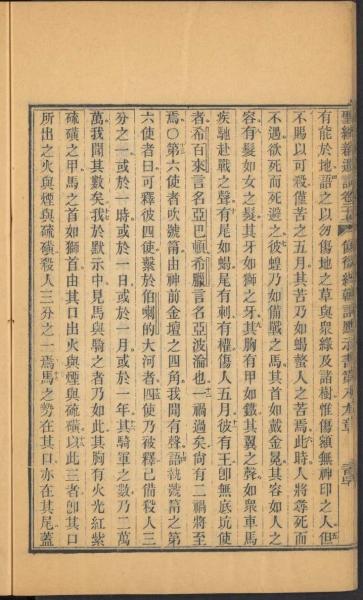 有能於地語之以勿傷地之草與衆綠及諸樹惟傷額無神印之人但
不賜以可殺僅苦之五月其苦乃如蝎螫人之苦焉此時人將尋死而
不遇欲死而死避之彼蝗乃如備戰之馬其首如戴金冕其容如人之
容有髮如女之髮其牙如獅之牙其胸有甲如鐵其翼之聲如衆車馬
疾馳赴戰之聲有尾如蝎尾有刺有權傷人五月彼有王卽無底坑使
者希百來言名亞巴頓希臘言名亞波淪也一禍過矣尙有二禍將至
焉〇第六使者吹號筩由神前金壇之四角我聞有聲語執號筩之第
六使者曰可釋彼四使繫於伯喇的大河者四使乃被釋已備殺人三
分之一或於一時或於一日或於一月或於一年其騎軍之數乃二萬
萬我聞其數矣我於默示中見馬與騎之者乃如此其胸有火光紅紫
硫磺之甲馬之首如獅首由其口出火與煙與硫磺以此三者卽其口
所出之火與煙與硫磺殺人三分之一焉馬之勢在其口亦在其尾蓋